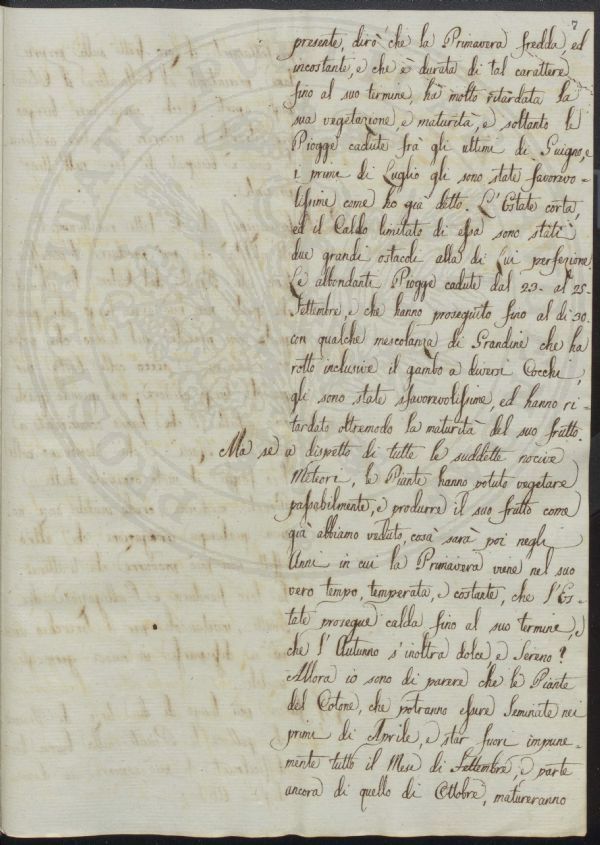 7
presente, dirò che la Primavera fredda ed
incostante, e che è durata di tal carattere
fino al suo termine, hà molto ritardata la
sua vegetazione, e maturità, e soltanto le
Piogge cadute frà gli ultimi di Giugno, e
i primi di Luglio gli sono state favorevo-
lissime come hò già detto. L'Estate corta,
ed il Caldo limitato di essa sono stati
due grandi ostacoli alla di lui perfezione.
Le abbondanti Piogge cadute dal 23. al 25.
Settembre, e che hanno proseguito fino al dì 30.
con qualche mescolanza di Grandine che ha
rotto inclusive il gambo a diversi Cocchi,
gli sono state sfavorevolissime, ed hanno ri-
tardato oltremodo la maturità del suo frutto.
Ma se a dispetto di tutte le suddette nocive
Meteori, le Piante hanno potuto vegetare
passabilmente, e produrre il suo frutto come
già abbiamo veduto, cosà sarà poi negli
Anni in cui la Primavera viene nel suo
vero tempo, temperata, e costante, che l'Es-
tate prosegue calda fino al suo termine, e
che l'Autunno s'inoltra dolce, e Sereno?
Allora io sono di parere che le Piante
del Cotone, che potranno essere Seminate nei
primi di Aprile, e star fuori impune-
mente tutto il Mese di Settembre, e parte
ancora di quello di Ottobre, matureranno